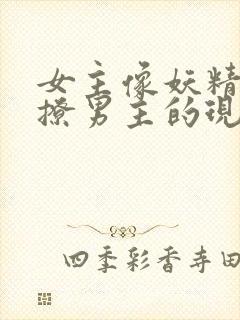 女主像妖精
撩男主的现
四季彩香寺田